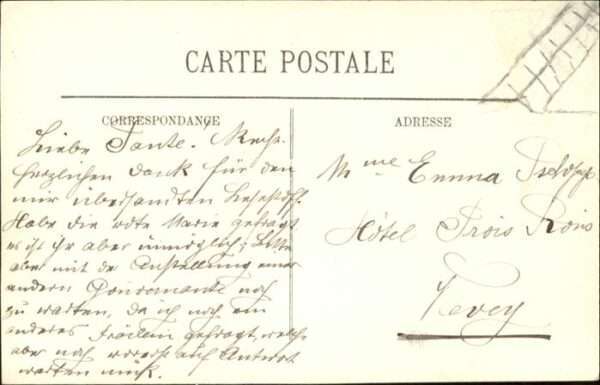 CARTE POSTALE
CORRESPONDANCE
ADRESSE
Liebe Tante.
herzlichen Dank für den
mir übersandten
Habe die Marie gefragt
es ist ihr aber unmöglich; bitte
aber mit de Anstellung einer
andern Gouvernante noch
zu warten, da ich noch ein
anderes Fräulein gefragt, welche
aber noch auf Antwort
warten
Mme Emma
Hôtel Trois Rois
Vevey